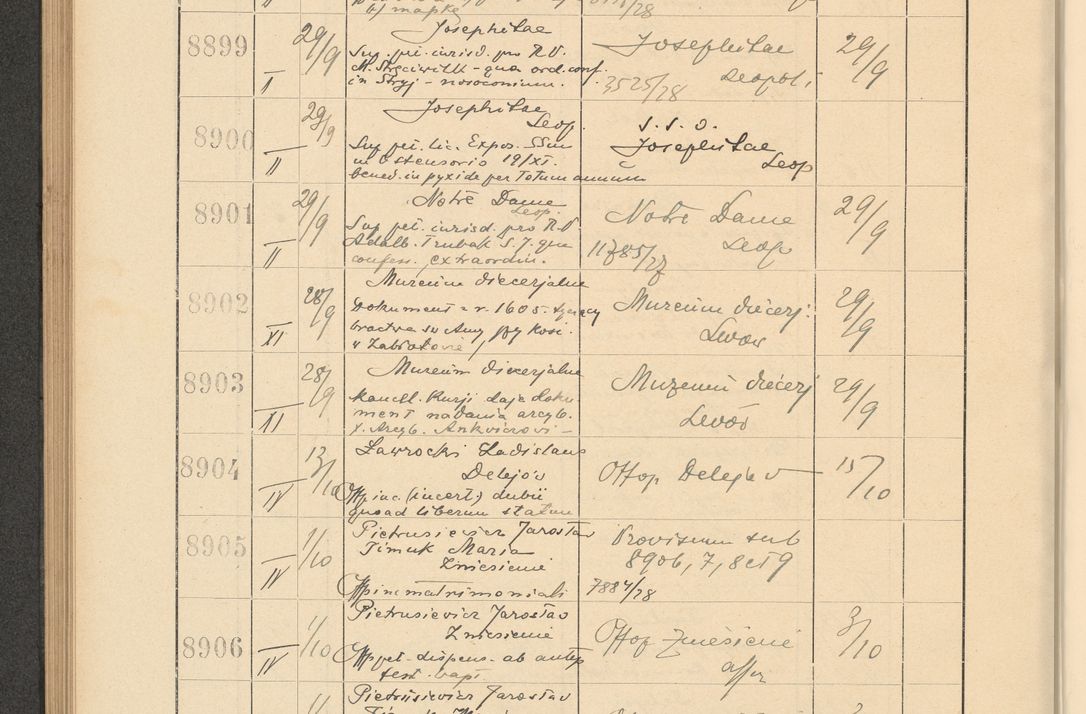 6) mapkę /28
8899 II 29/9 Josephitae
Sup. pet. iurisd. pro R.D.
M. - qua ord. conf.
in Stryj - nosoconium.
Josephitae
Leopoli
3525/28
29/9
8900 II 29/9 Josephitae
Leop.
Sup pet. lic. Expos. SSmi
in Ostensorio 19/XI.
bened. in pyxide per totum annum
S. S. O.
Josephitae
Leop
8901 II 29/9 Notre Dame
Leop.
Sup. pet. iurisd. pro R.D
Adalb. Trubak S. J. qua
confess. extraordin.
Notre Dame
Leop
11785/27
29/9
8902 XI 28/9 Muzeum diecezjalne
Dokument z r. 1605. tyczący
bractwa św Anny
w Zabłotowie
Muzeum diecezj.
Lwów
29/9
8903 XI 28/9 Muzeum diecezjalne
kancel. Kurji daje doku-
ment nadania arcyb.
X. Arcyb. Ankwiczowi -
Muzeum diecezj
Lwów
29/9
8904 IV 13/10 Ławrocki Ladislaus
Delejów
Offp iac. (incert.) dubii
quoad liberum statum
Offop Delejów
15/10
8905 IV 1/10 Pietrusiewicz Jarosław
Timuk Maria
Zniesienie
Offp in matrimoniali
Provisum sub
8906, 7, 8 et 9
7884/28
8906 IV 1/10 Pietrusiewicz Jarosław
Zniesienie
Offp pet. dispens. ab
test. bapt.
Offop Zniesienie
3/10
Pietrusiewicz Jarosław